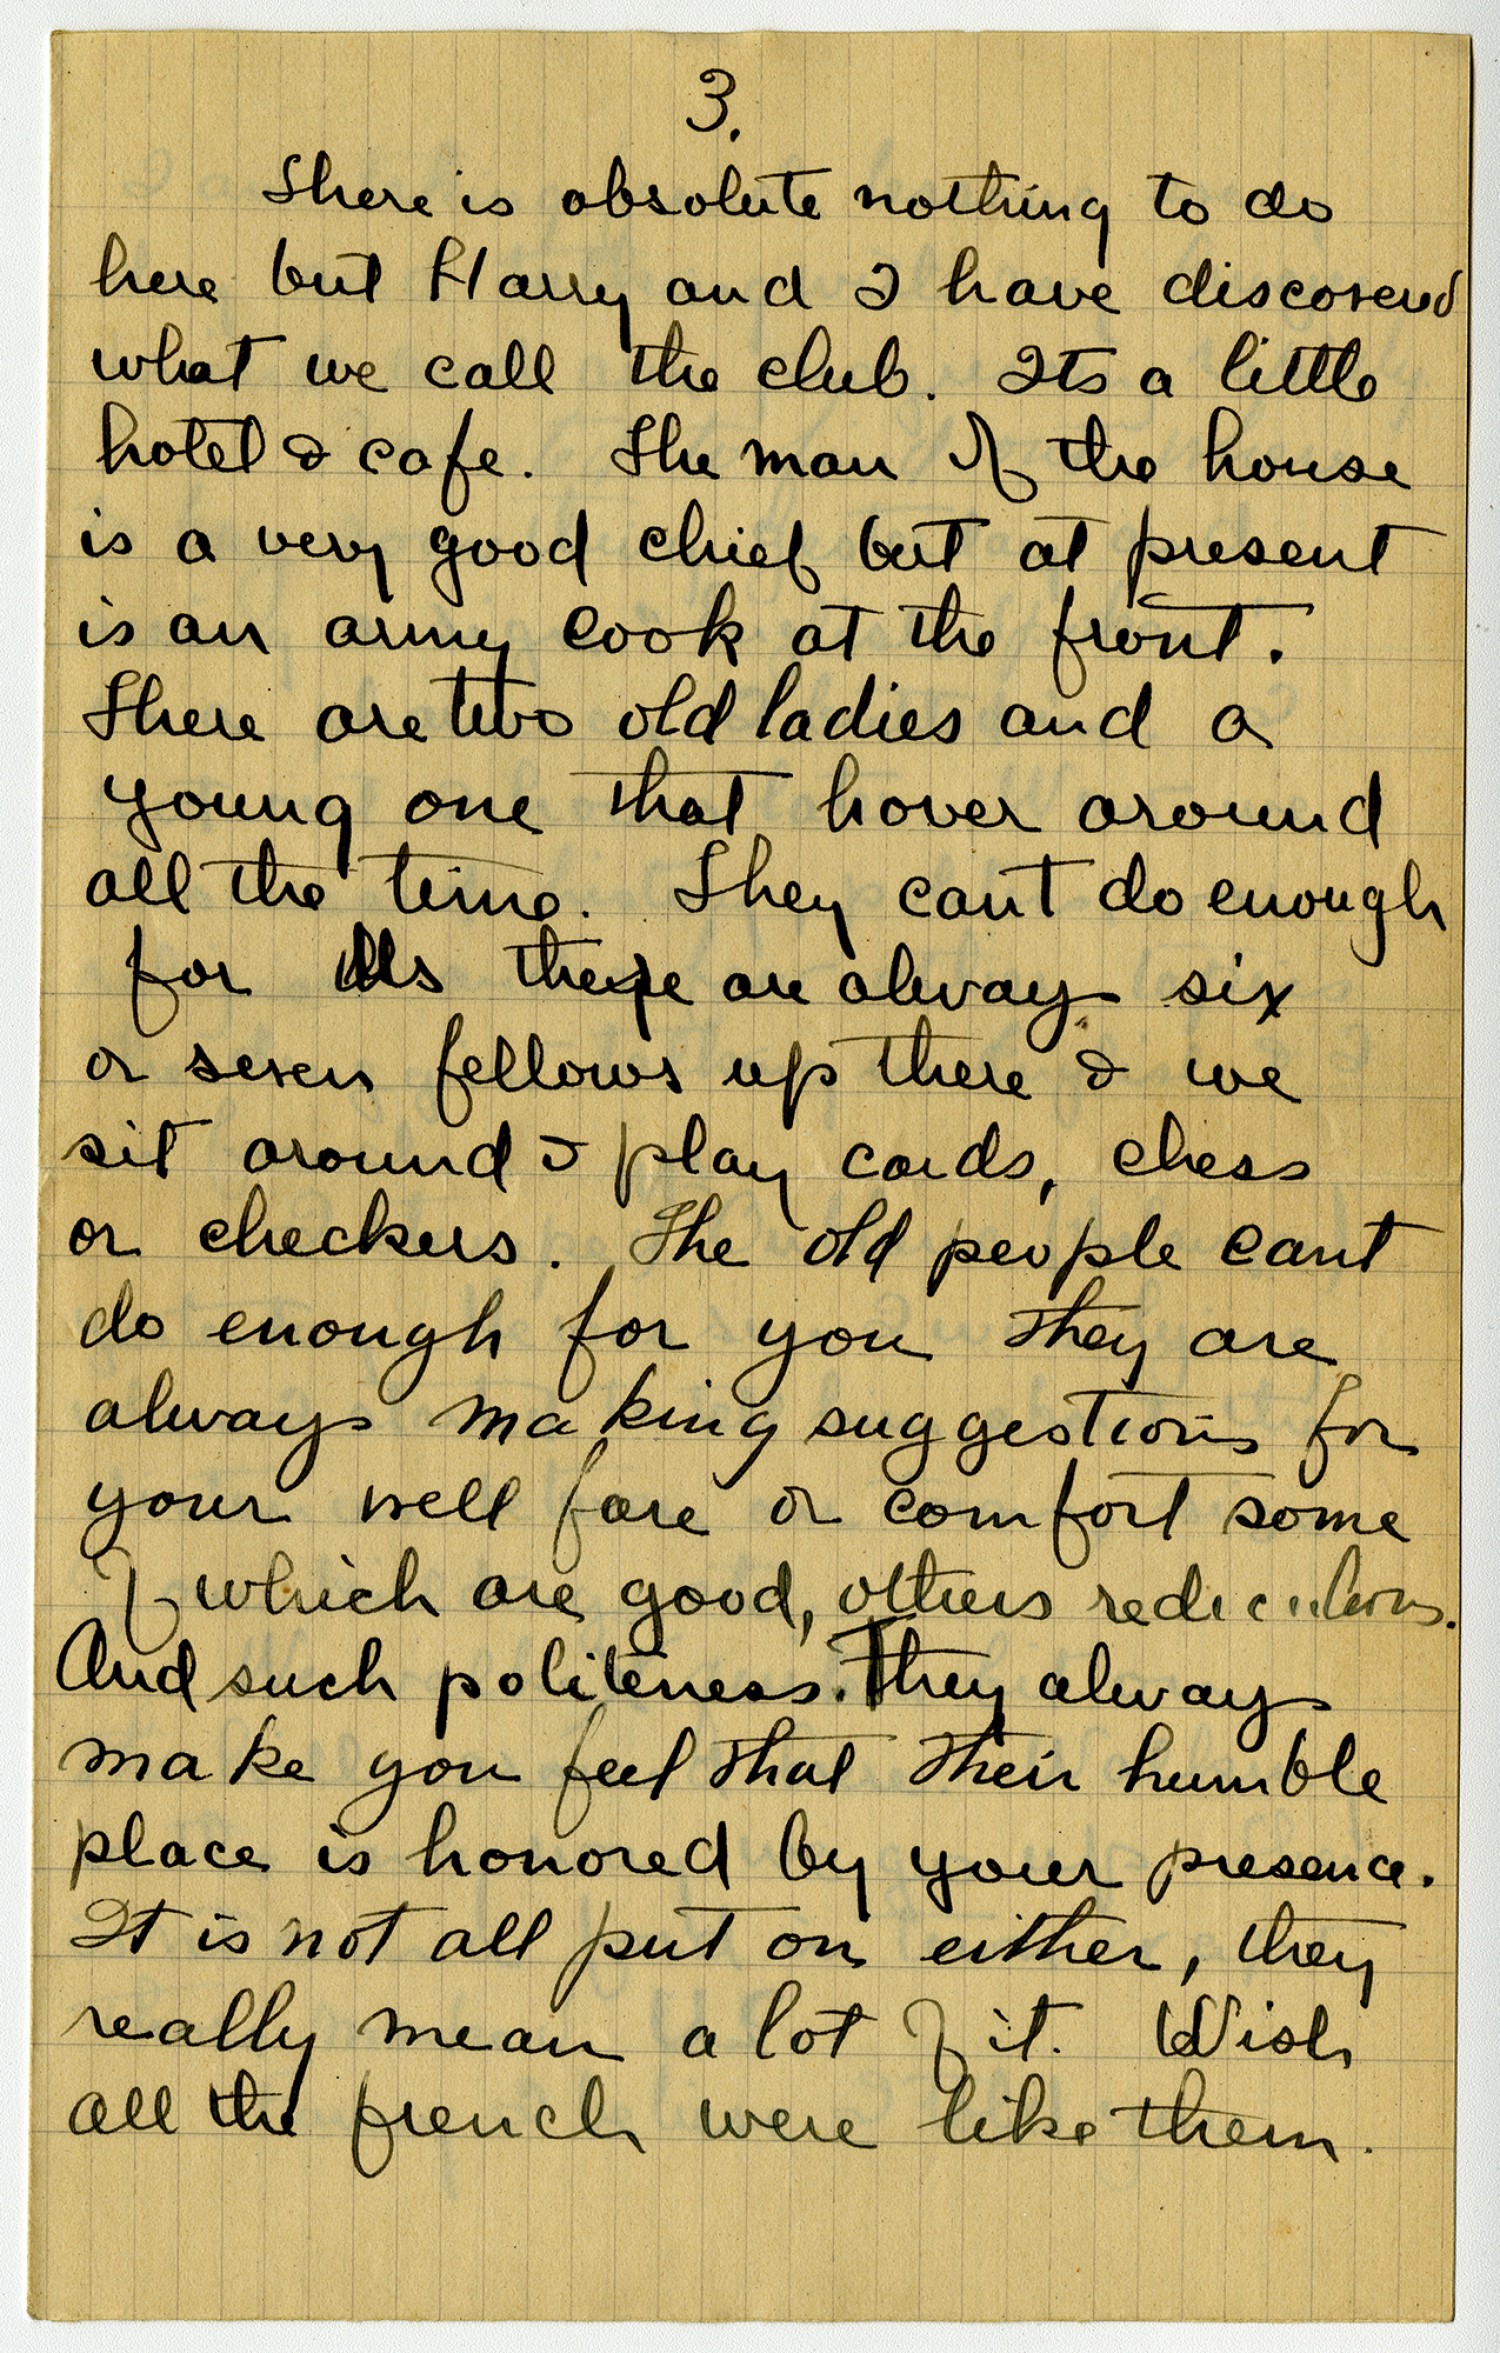 3.
There is absolute nothing to do
here but Harry and I have discovered
what we call the club. Its a little
hotel & cafe. The man of the house
is a very good chief but at present
is an army cook at the front.
There are two old ladies and a
young one that hover around
all the time. They cant do enough
for us there are always six
or seven fellows up there & we
sit around & play cards, chess
or checkers. The old people cant
do enough for you they are
always making suggestions for
your well fare or comfort some
of which are good, others rediculous.
And such politeness. They always
make you feel that their humble
place is honored by your presence.
It is not all put on either, they
really mean a lot of it. Wish
all the french were like them.